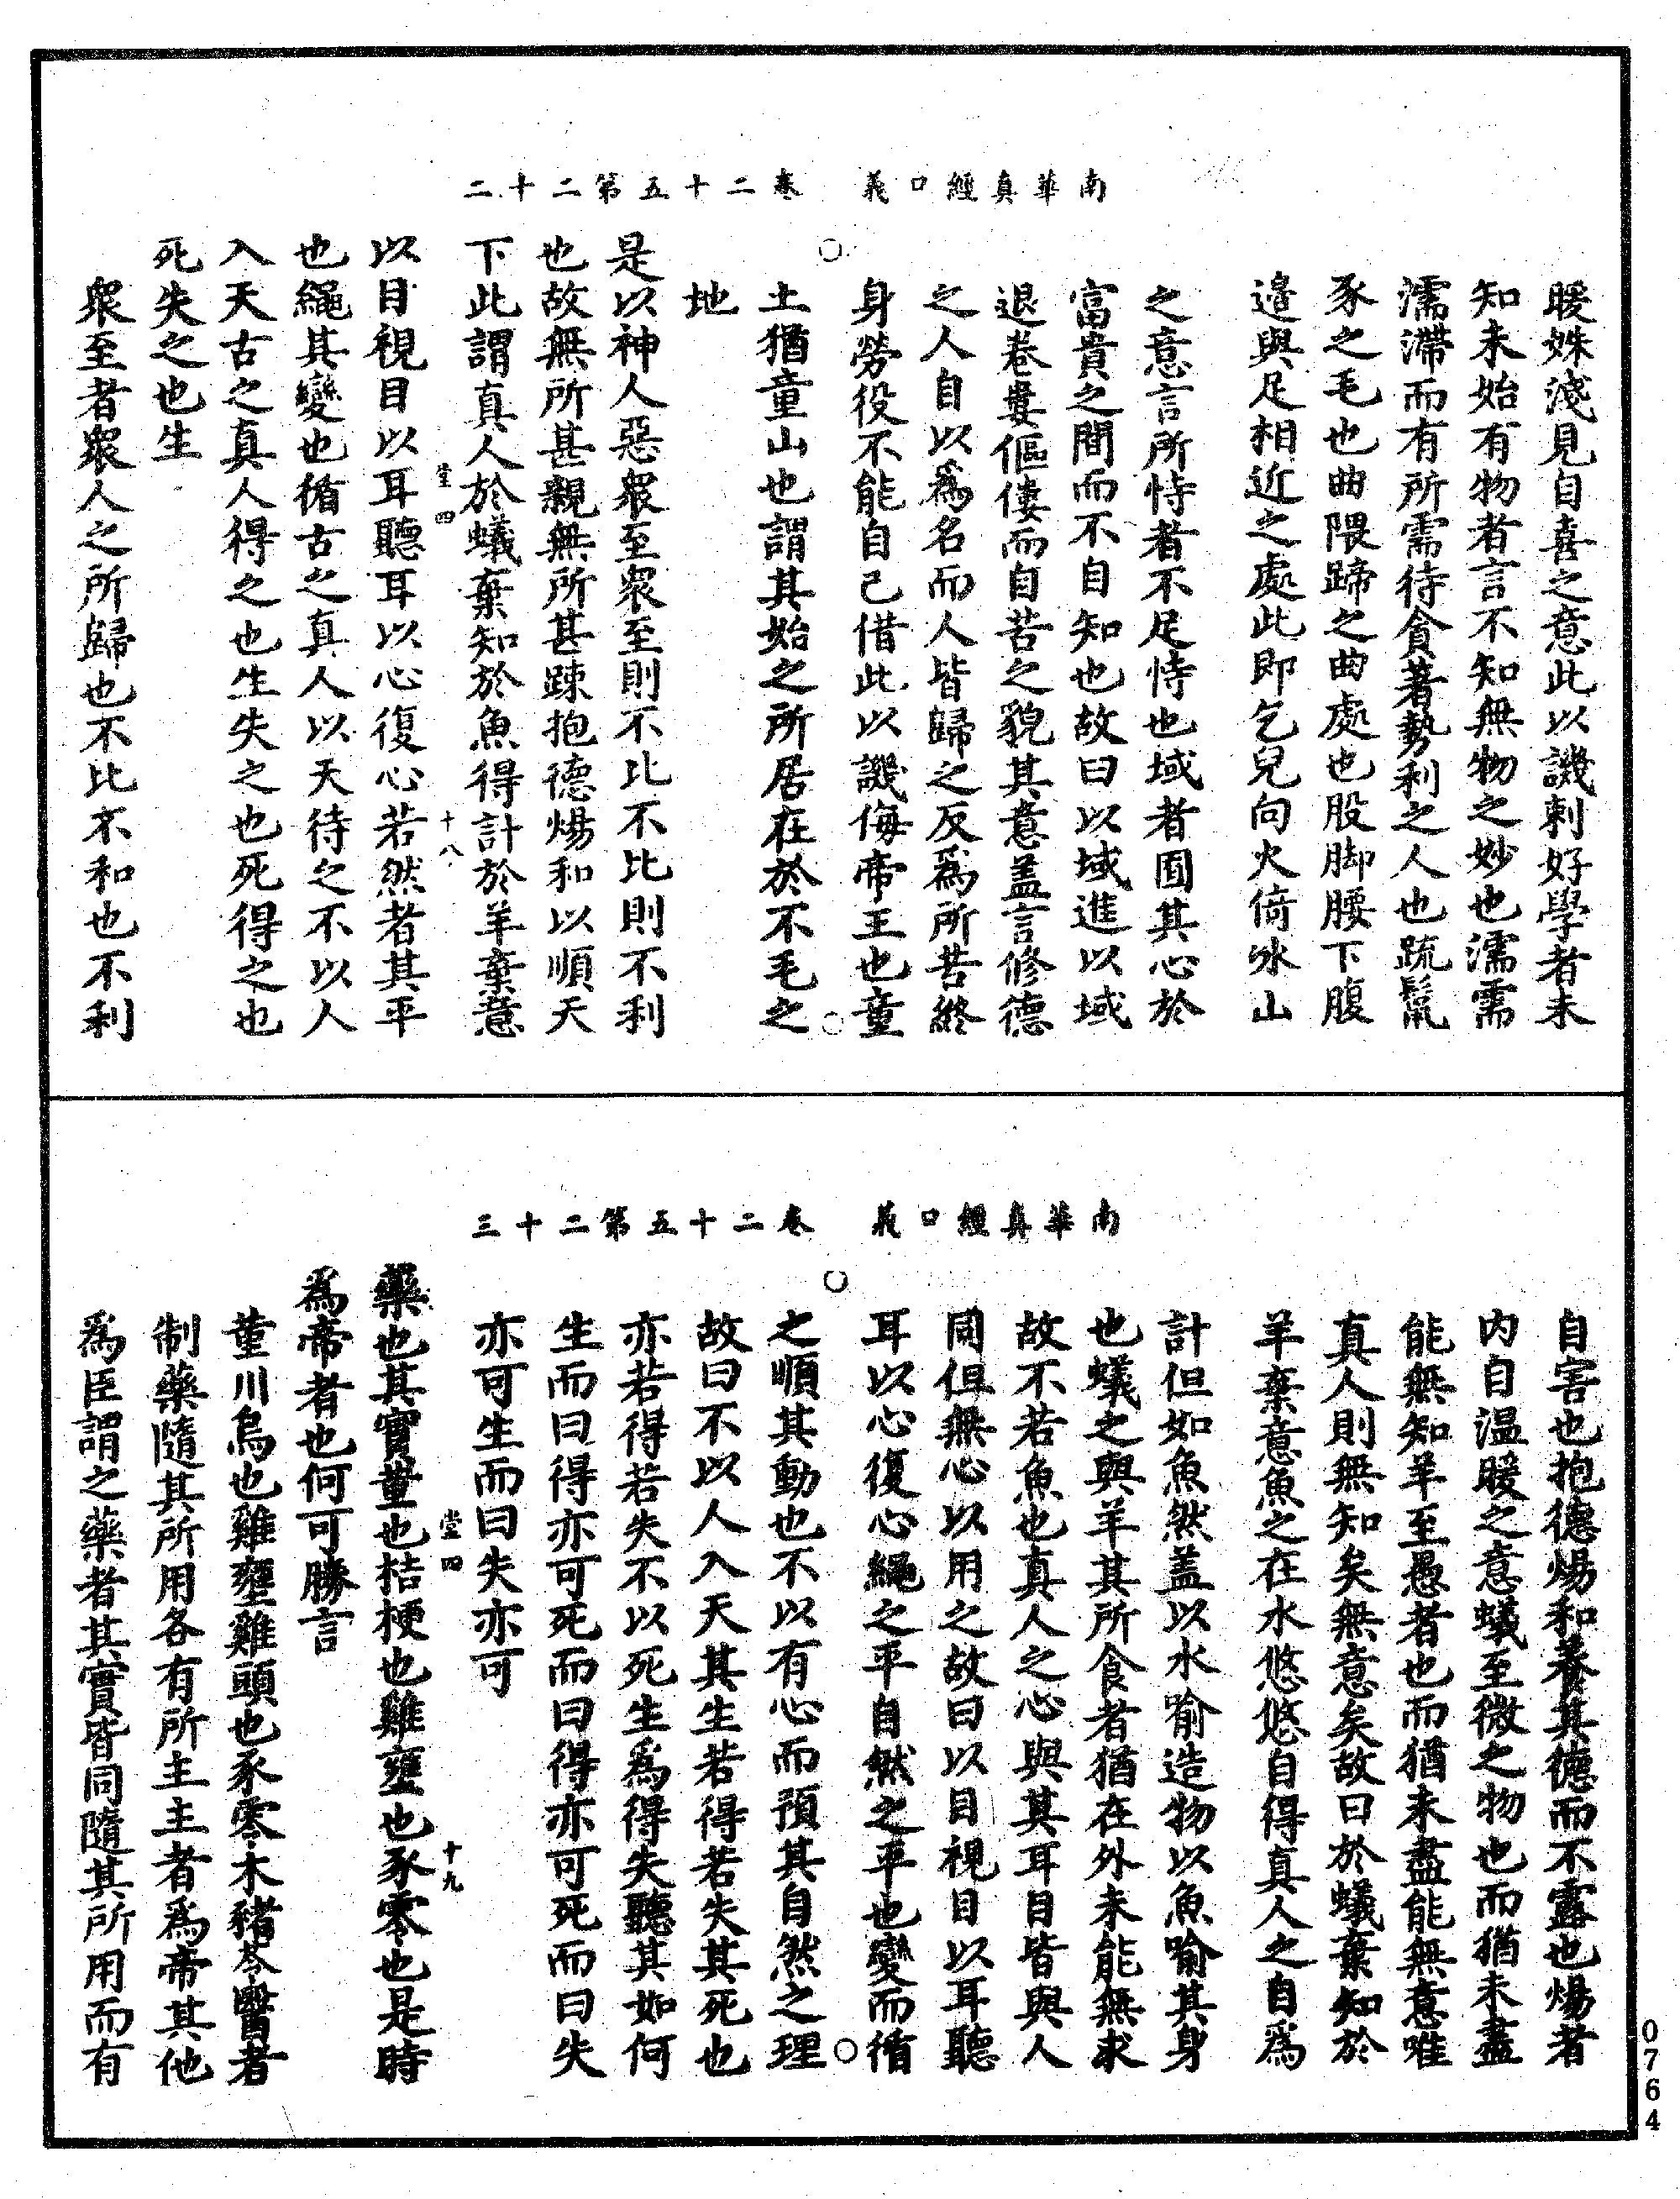 南華真經口義　卷二十五第二十二
暖姝淺見自喜之意此以譏刺好學者未
知未始有物者言不知無物之妙也濡需
濡滯而有所需待貪著勢利之人也䟽鬣
豕之毛也曲隈蹄之曲處也股脚腰下腹
邉與足相近之處此即乞兒向火倚冰山
之意言所恃者不足恃也域者囿其心於
富貴之間而不自知也故曰以域進以域
退卷婁傴僂而自苦之貌其意盖言修德
之人自以爲名而人皆歸之反爲所苦終
身勞役不能自已借此以譏侮帝王也童
土猶童山也謂其始之所居在於不毛之
地
是以神人惡衆至衆至則不比不比則不利
也故無所甚親無所甚踈抱德煬和以順天
下此謂真人於蟻棄知於魚得計於羊棄意
堂四　十八
以目視目以耳聽耳以心復心若然者其平
也繩其變也循古之真人以天待之不以人
入天古之真人得之也生失之也死得之也
死失之也生
衆至者衆人之所歸也不比不和也不利
南華真經口義　卷二十五第二十三
自害也抱德煬和養其德而不露也煬者
内自温暖之意蟻至微之物也而猶未盡
能無知羊至愚者也而猶未盡能無意唯
真人則無知矣無意矣故曰於蟻棄知於
羊棄意魚之在水悠悠自得真人之自爲
計但如魚然盖以水喻造物以魚喻其身
也蟻之與羊其所食者猶在外未能無求
故不若魚也真人之心與其耳目皆與人
同但無心以用之故曰以目視目以耳聽
耳以心復心繩之平自然之平也變而循
之順其動也不以有心而預其自然之理
故曰不以人入天其生若得若失其死也
亦若得若失不以死生爲得失聽其如何
生而曰得亦可死而曰得亦可死而曰失
亦可生而曰失亦可
堂四　十九
藥也其實堇也桔梗也雞壅也豕零也是時
爲帝者也何可勝言
堇川烏也雞壅雞頭也豕零木豬苓毉者
制藥隨其所用各有所主主者爲帝其他
爲臣謂之藥者其實皆同隨其所用而有
0764